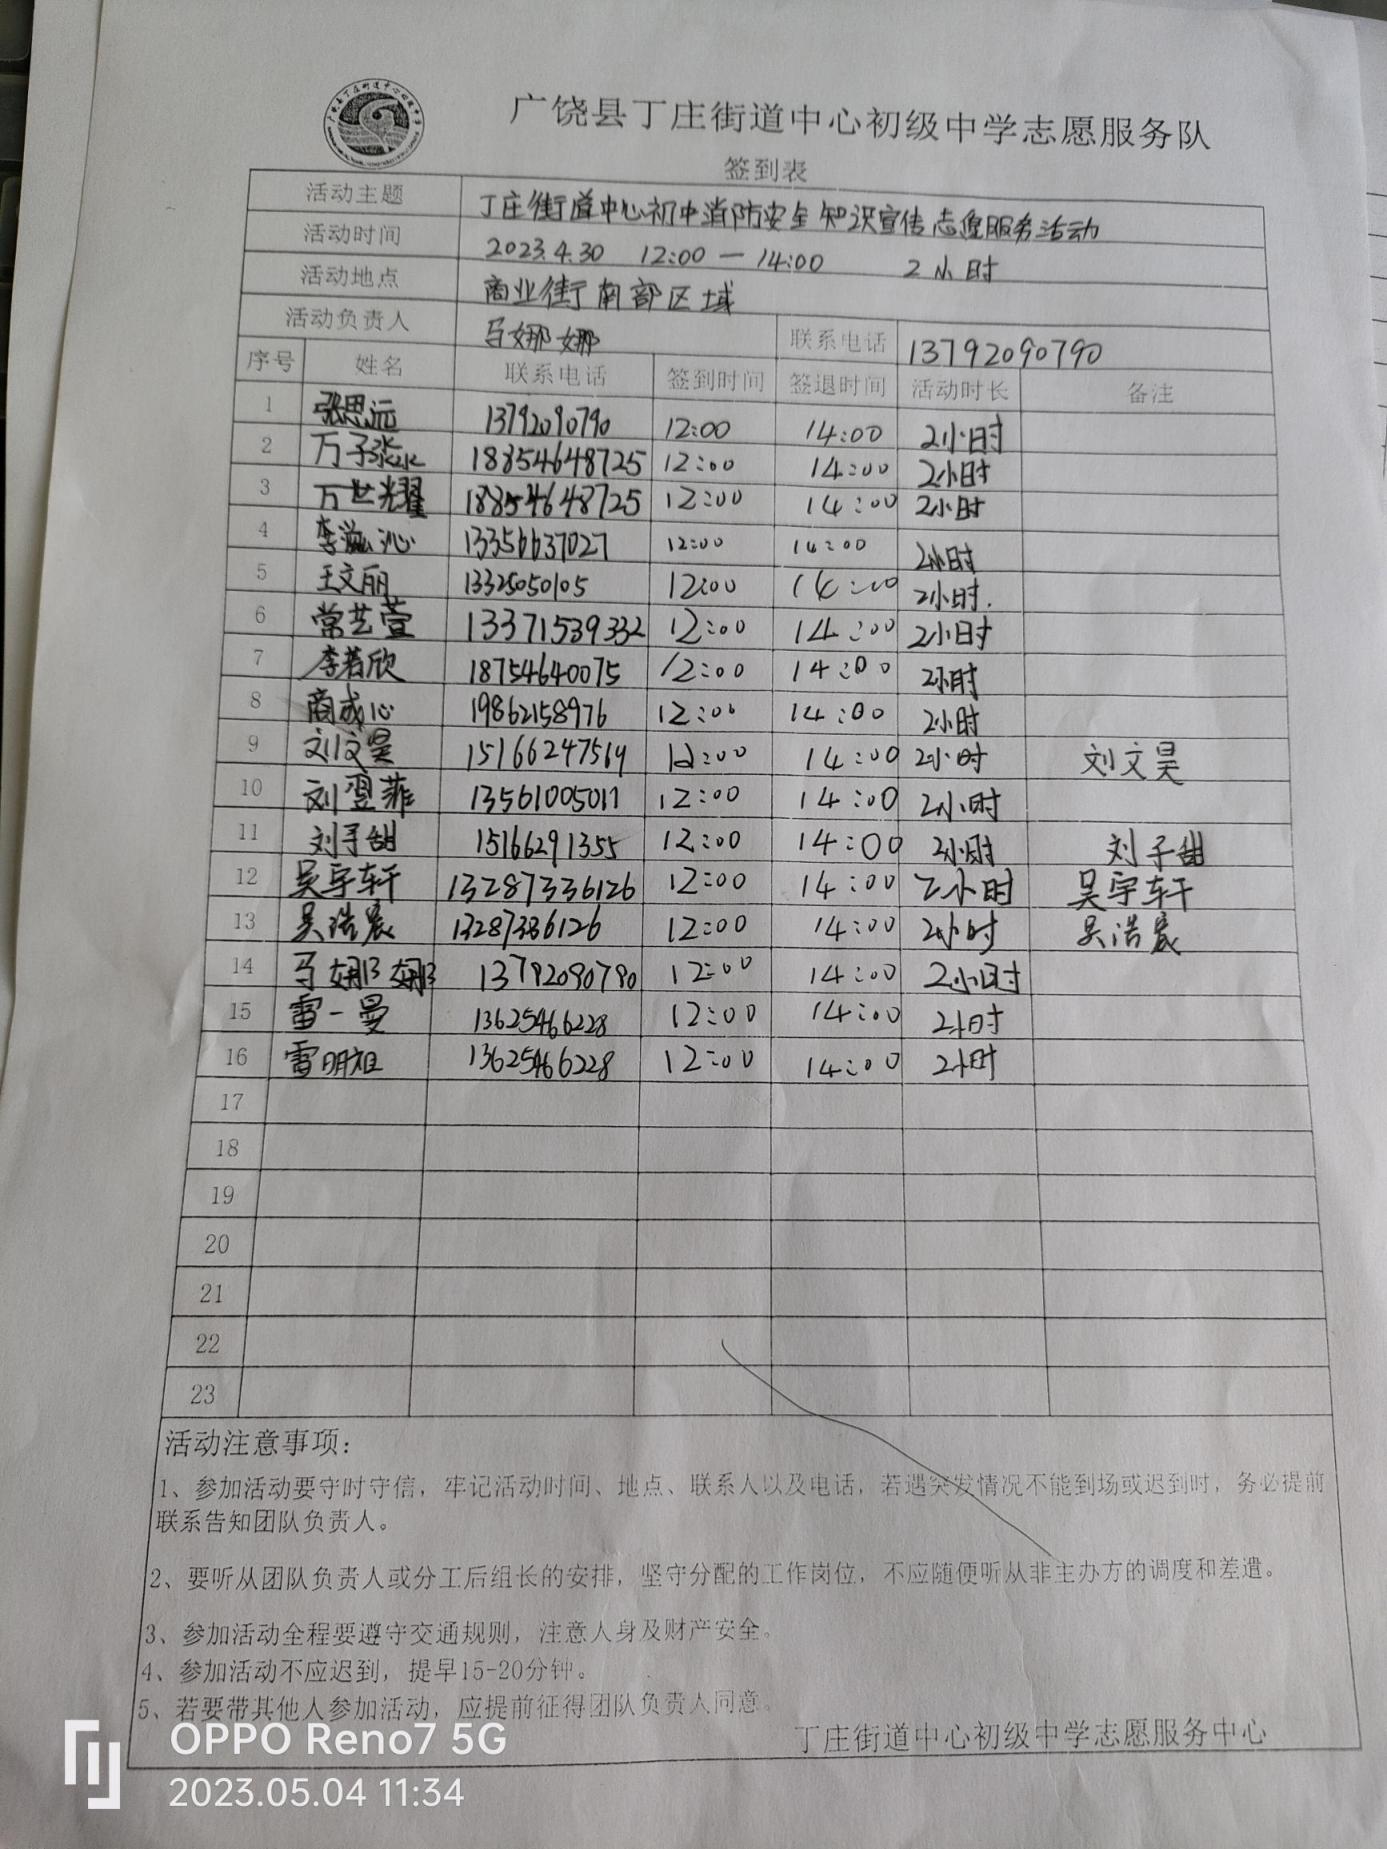 广饶县丁庄街道中心初级中学志愿服务队
签到表
活动主题 丁庄街道中心初中消防安全知识宣传志愿服务活动
活动时间 2023.4.30 12:00 — 14:00 2小时
活动地点 商业街南部区域
活动负责人 马娜娜 联系电话 13792090790
序号 姓名 联系电话 签到时间 签退时间 活动时长 备注
1 张思远 13792090790 12:00 14:00 2小时
2 万子 18854648725 12:00 14:00 2小时
3 万世耀 18854648725 12:00 14:00 2小时
4 李滋沁 13356637027 12:00 14:00 2小时
5 王文丽 13325050105 12:00 14:00 2小时.
6 常艺萱 13371539332 12:00 14:00 2小时
7 李若欣 18754640075 12:00 14:00 2小时
8 商成心 19862158976 12:00 14:00 2小时
9 刘文昊 15166247519 12:00 14:00 2小时 刘文昊
10 刘翌菲 13561005011 12:00 14:00 2小时
11 刘子甜 15166291355 12:00 14:00 2小时 刘子甜
12 吴宇轩 13287336126 12:00 14:00 2小时 吴宇轩
13 吴浩宸 13287336126 12:00 14:00 2小时 吴浩宸
14 马娜娜 13792090790 12:00 14:00 2小时
15 雷一曼 13625466228 12:00 14:00 2小时
16 雷明烜 13625466228 12:00 14:00 2小时
17
18
19
20
21
22
23
活动注意事项：
1、参加活动要守时守信，牢记活动时间、地点、联系人以及电话，若遇突发情况不能到场或迟到时，务必提前
联系告知团队负责人。
2、要听从团队负责人或分工后组长的安排，坚守分配的工作岗位，不应随便听从非主办方的调度和差遣。
3、参加活动全程要遵守交通规则，注意人身及财产安全。
4、参加活动不应迟到，提早15-20分钟。
5、若要带其他人参加活动，应提前征得团队负责人同意。
丁庄街道中心初级中学志愿服务中心
OPPO Reno7 5G
2023.05.04 11:34